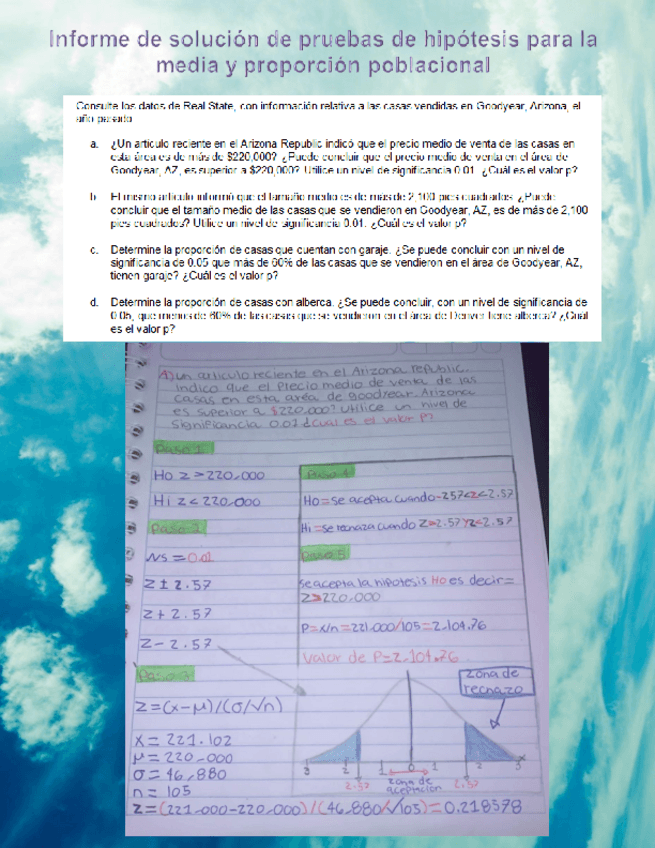 Informe de solución de pruebas de hipótesis para la
media y proporción poblacional
Consulte los datos de Real State, con información relativa a las casas vendidas en Goodyear, Arizona, el
año pasado
a. ¿Un artículo reciente en el Arizona Republic indicó que el precio medio de venta de las casas en
esta área es de más de $220,000? ¿Puede concluir que el precio medio de venta en el área de
Goodyear, AZ, es superior a $220,000? Utilice un nivel de significancia 0.01. ¿Cuál es el valor p?
b. El mismo artículo informó que el tamaño medio es de más de 2,100 pies cuadrados. ¿Puede
concluir que el tamaño medio de las casas que se vendieron en Goodyear, AZ, es de más de 2,100
pies cuadrados? Utilice un nivel de significancia 0.01. ¿Cuál es el valor p?
c. Determine la proporción de casas que cuentan con garaje. ¿Se puede concluir con un nivel de
significancia de 0.05 que más de 60% de las casas que se vendieron en el área de Goodyear, AZ,
tienen garaje? ¿Cuál es el valor p?
d. Determine la proporción de casas con alberca. ¿Se puede concluir, con un nivel de significancia de
0.05, que menos de 60% de las casas que se vendieron en el área de Denver tiene alberca? ¿Cuál
es el valor p?
A) un articulo reciente en el Arizona Republic.
indico que el Precio medio de venta de las
casas en esta area de Goodrear. Arizona
es superior a $220,000? utilice un nivel de
significancia 0.01 ¿cual es el valor P?
Paso 1
Ho z > 220-000
Hi z < 220-000
Paso 2
NS = 0.01
z ± 2.57
z + 2.57
z - 2.57
Paso 3
z = (x-μ)/(σ/√n)
x = 221.102
μ = 220-000
σ = 46,880
n = 105
z = (221-000-220-000)/(46.880/√105) = 0.218578
Paso 4
Ho = se acepta cuando -2.57<z<2.57
Hi = se rechaza cuando z>2.57 y z<2.57
Paso 5
se acepta la hipotesis Ho es decir =
z>220-000
P = x/n = 221.000/105 = 2-104.76
Valor de P = 2,104.76
zona de
rechazo
3 2 1 0 1 2 3
2.57 zona de 2.57
aceptacion